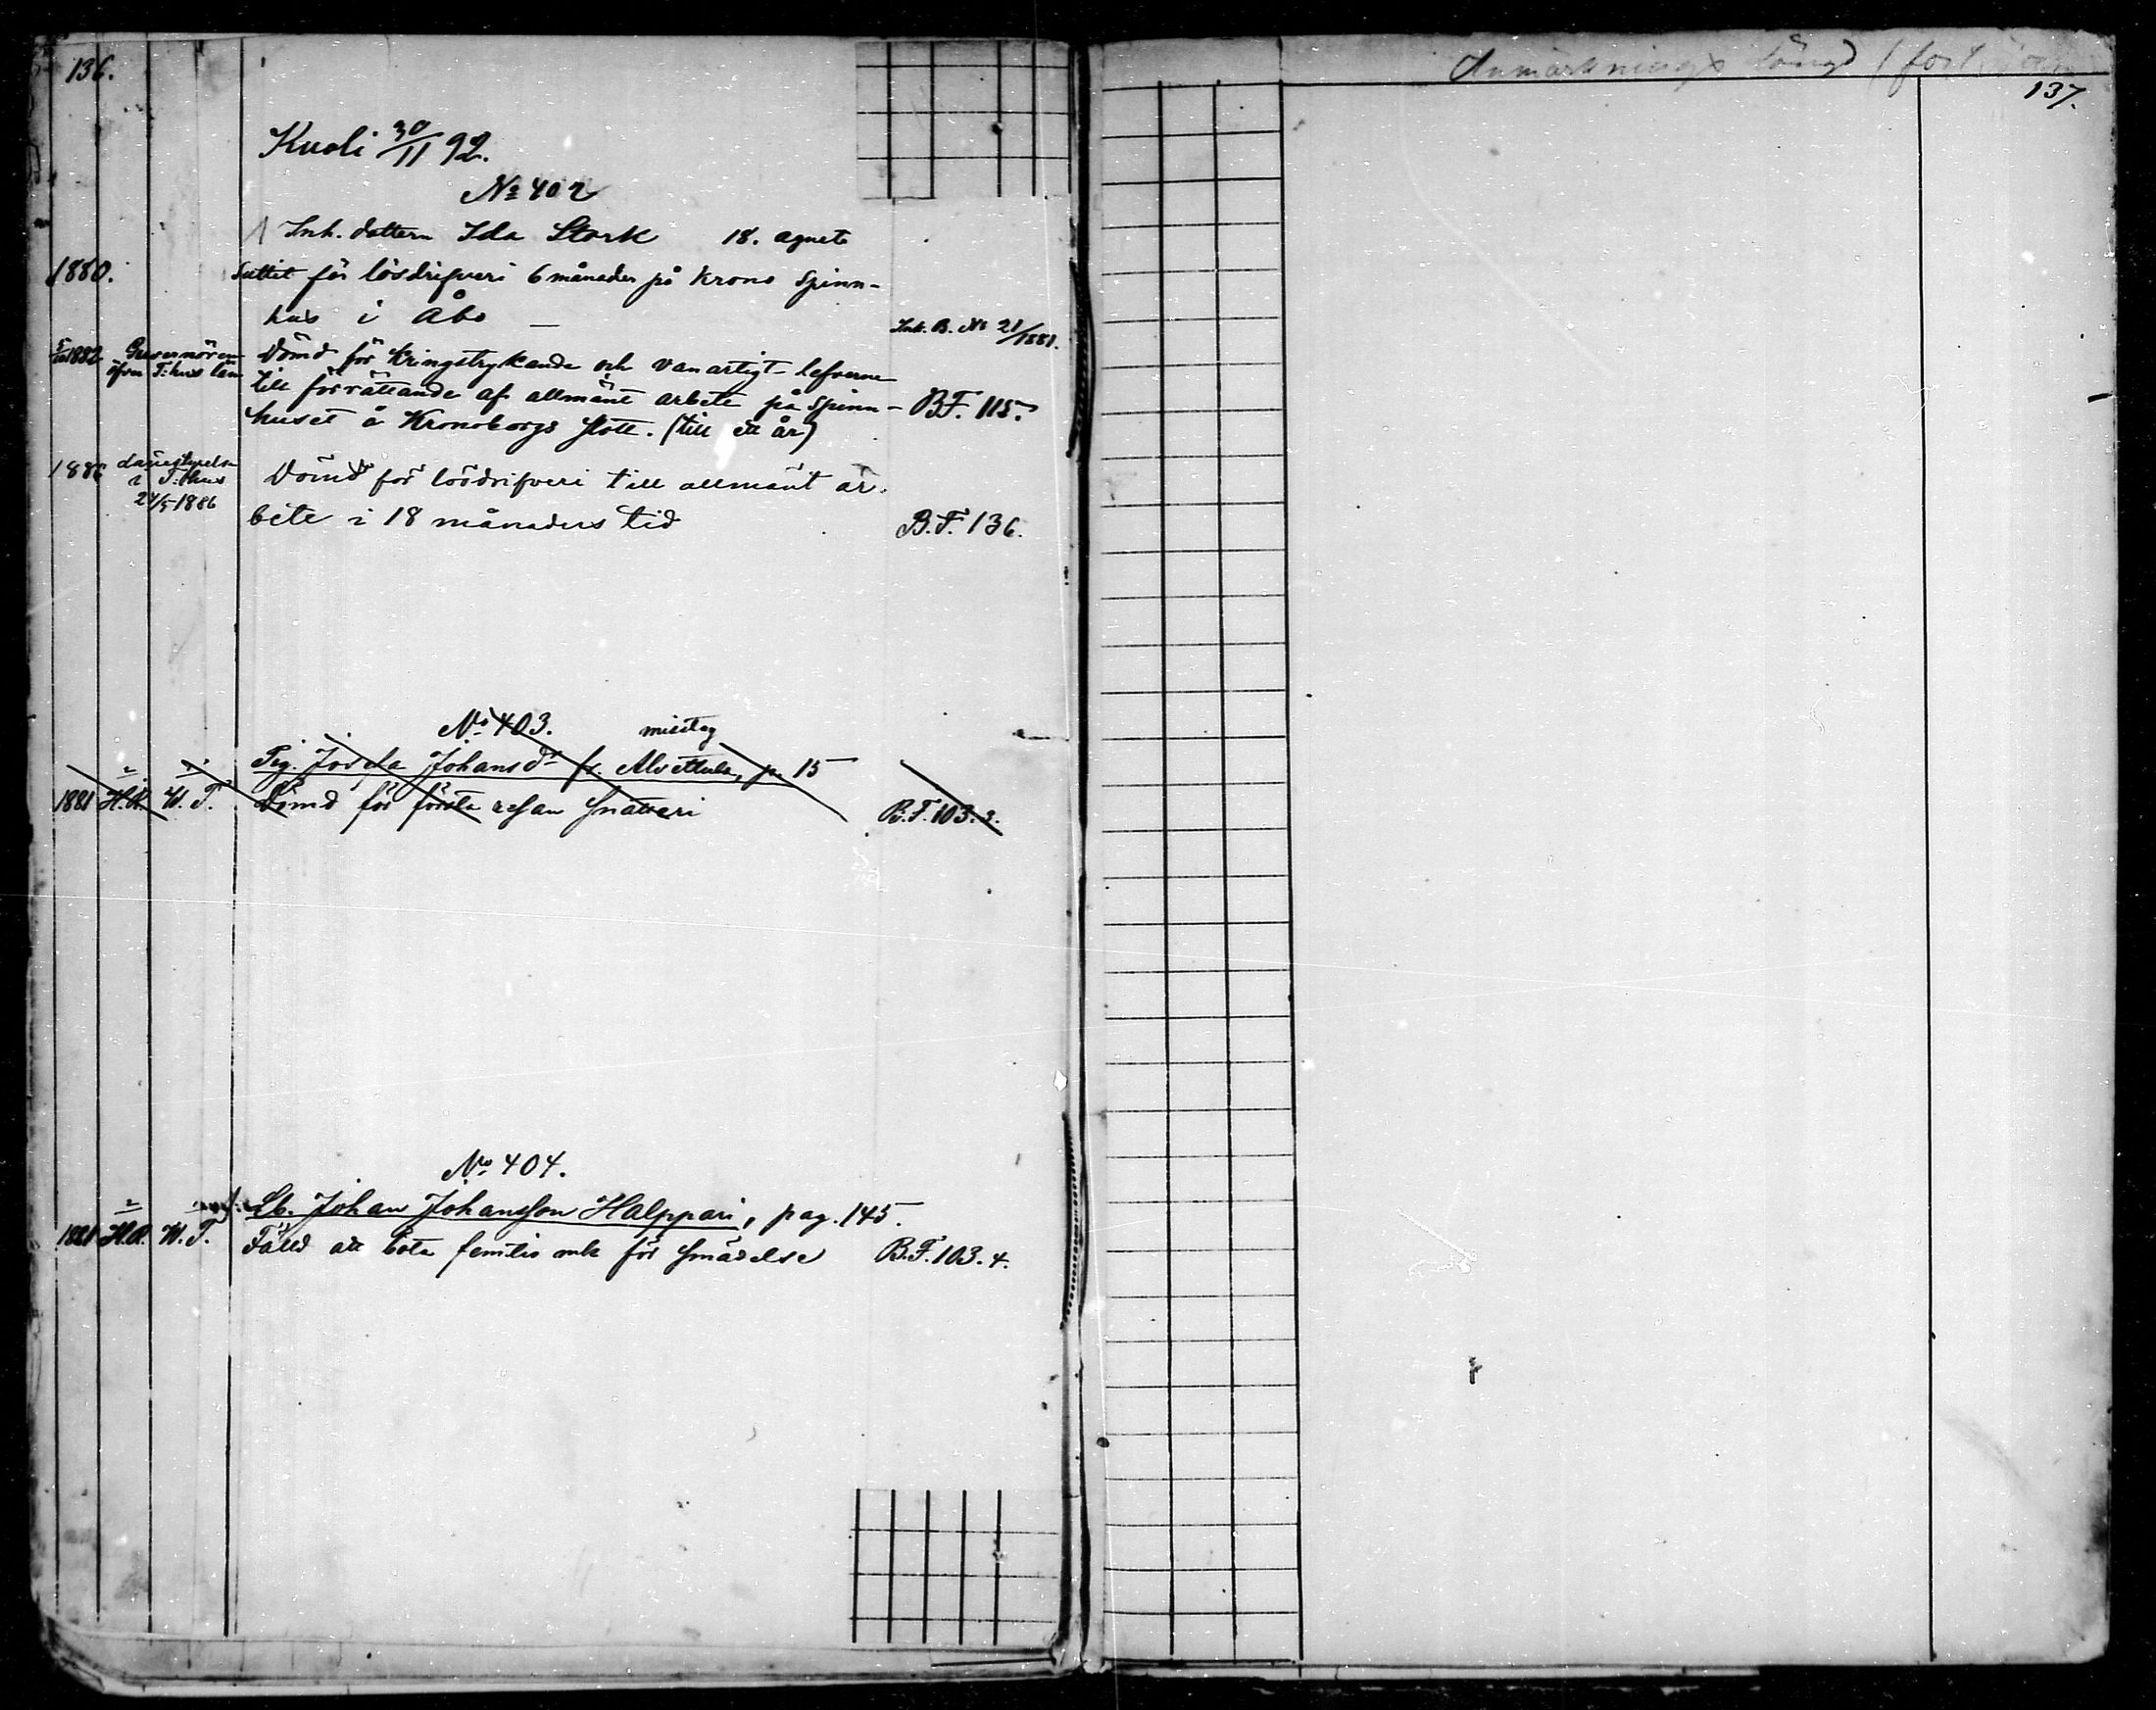 136.
Kuoli 30/11 92.
No 402
Inh. dottern Ida Stark 18. agnets
1880. Suttit för lösdrifveri 6 månader på Krono Spinn-
hus i Åbo — Ink. B. No 21/1881.
1882 Guvernören öfver T:hus län Dömd för Kringstrykande och vanartigt lefverne
till förrättande af allmänt arbete på Spinn- B.F. 115.
huset å Kronoborgs slott. (till ett år)
1886 Länestyrelsen i T:hus 24/5 1886 Dömd för lösdrifveri till allmänt ar-
bete i 18 månaders tid B.F. 136.
No 403. misstag
Pig. Josefa Johansdr fr. Alvettula, p. 15
1881 H.R. W.T. Dömd för första resan snatteri B.F. 103. 3.
No 404.
Lb. Johan Johansson Halppari, pag. 145.
1881 H.R. W.T. Fälld att böta femtio mk för smädelse B.F. 103. 4.
Anmärknings längd (forts.
137.